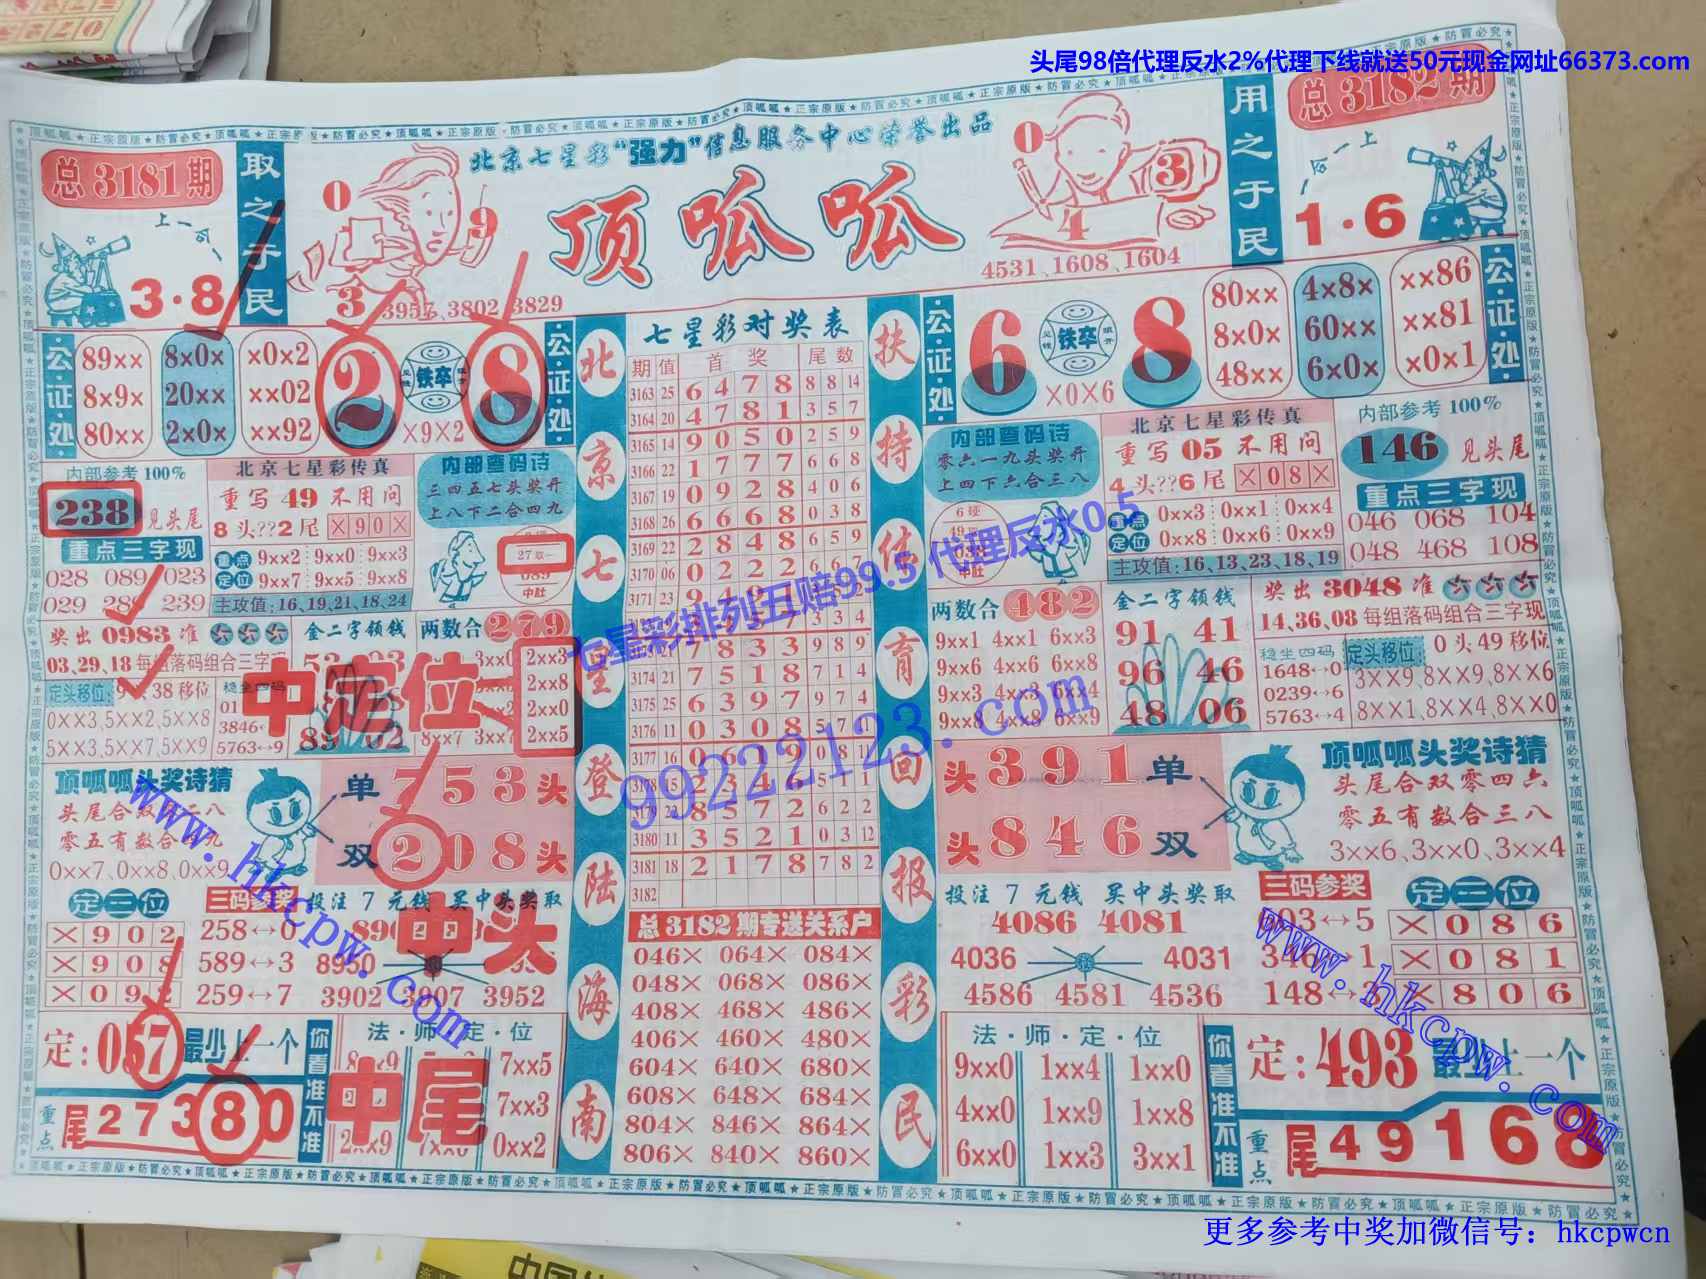 头尾98倍代理反水2%代理下线就送50元现金网址66373.com
总3181期
取之于民
北京七星彩“强力”信息服务中心荣誉出品
顶呱呱
用之于民
总3182期
上一合一
3·8
0
9
3
3957、3802、3829
0
3
4
4531、1608、1604
一合一上
1·6
公证处
89×× 8×0× ×0×2
8×9× 20×× ××02
80×× 2×0× ××92
2
铁卒
8
×9×2
公证处
内部参考100%
238
见头尾
重点三字现
028 089 023
029 289 239
北京七星彩传真
重写49不用问
8头??2尾
×90×
重点定位
9××2 9××0 9××3
9××7 9××5 9××8
主攻值:16,19,21,18,24
内部查码诗
三四五七头奖开
上八下二合四九
27取一
089
中肚
奖出0983准
03,29,18每组落码组合三字现
定头移位
38移位
0××3,5××2,5××8
5××3,5××7,5××9
稳坐四码
3846
5763↔9
金二字领钱
89 02
中定位
两数合279
2××3
2××8
2××0
2××5
8××7
顶呱呱头奖诗猜
头尾合双
零五有数合
0××7、0××8、0××9
单
753头
双
208头
定三位
×902
×908
×092
三码参奖
258↔6
589↔3
259↔7
投注7元钱 买中头奖取
8950
3902 3907 3952
中头
定:057最少上一个
重点
尾27380
你看准不准
法·师·定·位
7××5
7××3
2××9 7××6 0××2
中尾
北京七星登陆海南
七星彩对奖表
期 值 首奖 尾数
3163 25 6 4 7 8 8 8 14
3164 20 4 7 8 1 3 5 7
3165 14 9 0 5 0 2 5 9
3166 22 1 7 7 7 6 6 8
3167 19 0 9 2 8 4 0 6
3168 26 6 6 6 8 0 3 8
3169 22 2 8 4 8 6 5 9
3170 06 0 2 2 2
3171 23 9 4
7 8 3 3 9 8 9
3174 21 7 5 1 8 7 1 4
3175 25 6 3 9 7 9 4
3176 11 0 3 0 8 5 7
3177 16 0 6 1 9 0 8 11
3178 15 2 3 4 6 5 1 1
3179 22 8 5 7 2 6 2 2
3180 11 3 5 2 1 0 3 12
3181 18 2 1 7 8 7 8 2
3182
总3182期专送关系户
046× 064× 084×
048× 068× 086×
408× 468× 486×
406× 460× 480×
604× 640× 680×
608× 648× 684×
804× 846× 864×
806× 840× 860×
扶持体育回报彩民
公证处
6
铁卒
8
×0×6
80×× 4×8× ××86
8×0× 60×× ××81
48×× 6×0× ×0×1
公证处
内部查码诗
零六一九头奖开
上四下六合三八
6球
49取一
038
中肚
北京七星彩传真
重写05不用问
4头??6尾
×08×
重点定位
0××3 0××1 0××4
0××8 0××6 0××9
主攻值:16,13,23,18,19
内部参考100%
146
见头尾
重点三字现
046 068 104
048 468 108
两数合482
9××1 4××1 6××3
9××6 4××6 6××8
9××3 4××3 6××4
9××8 4××8 6××9
金二字领钱
91 41
96 46
48 06
奖出3048准
14,36,08每组落码组合三字现
稳坐四码
1648↔0
0239↔6
5763↔4
定头移位
0头49移位
3××9,8××9,8××6
8××1,8××4,8××0
头391单
头846双
顶呱呱头奖诗猜
头尾合双零四六
零五有数合三八
3××6、3××0、3××4
投注7元钱 买中头奖取
4086 4081
4036 4031
4586 4581 4536
三码参奖
603↔5
346↔1
148↔3
定三位
×086
×081
×806
法·师·定·位
9××0 1××4 1××0
4××0 1××9 1××8
6××0 1××3 3××1
你看准不准
定:493最少上一个
重点
尾49168
七星彩排列五赔99.5 代理反水0.5
99222123.com
www.hkcpw.com
www.hkcpw.com
顶呱呱★正宗原版★防冒必究★
更多参考中奖加微信号: hkcpwcn